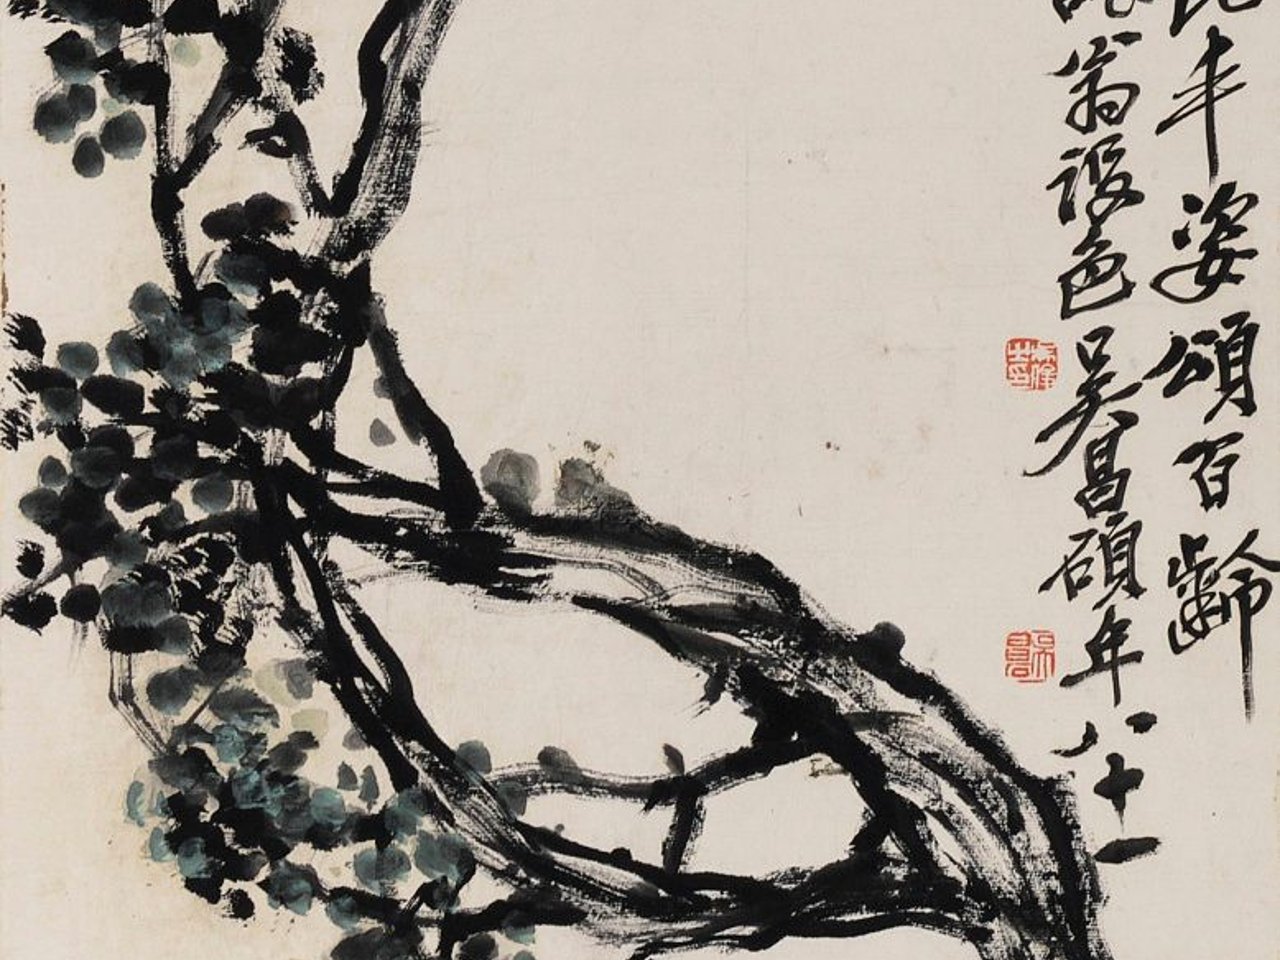 丰姿頌百齡
翁設色吳昌碩年八十一